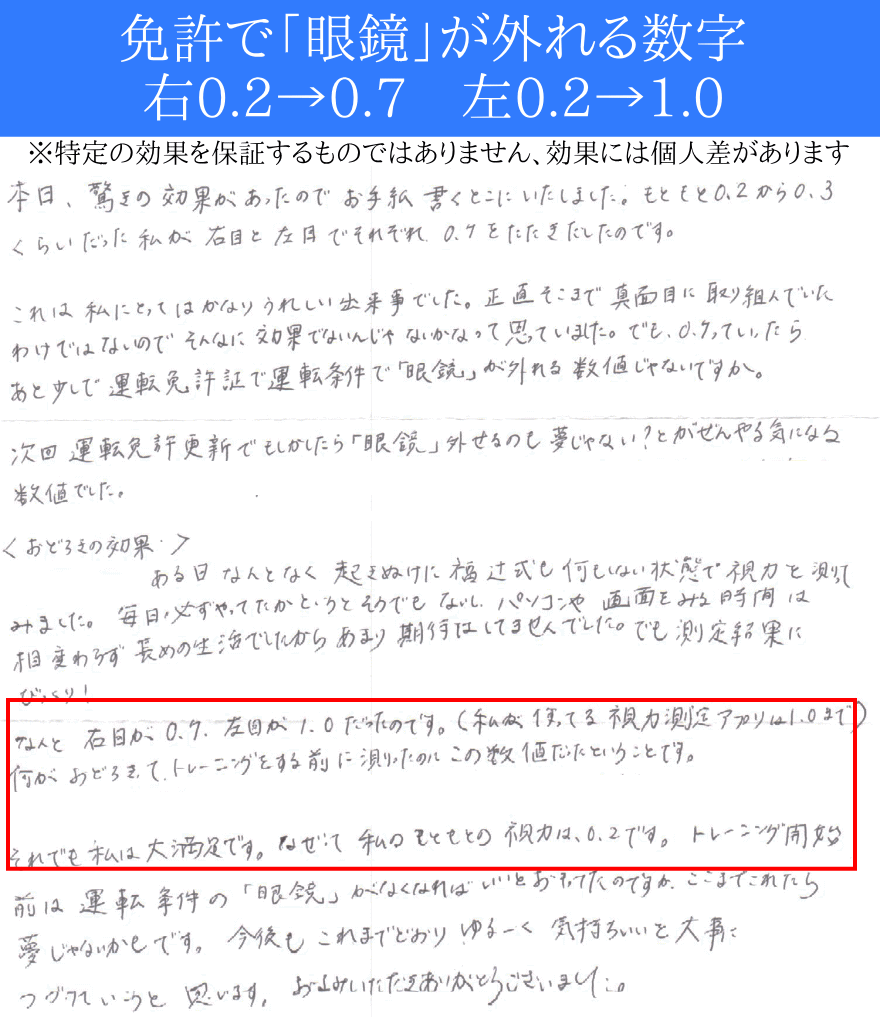 免許で「眼鏡」が外れる数字
右0.2→0.7　左0.2→1.0
※特定の効果を保証するものではありません、効果には個人差があります
本日、驚きの効果があったのでお手紙書くとこにいたしました。もともと0.2から0.3
くらいだった私が右目と左目でそれぞれ0.7をたたきだしたのです。
これは私にとってはかなりうれしい出来事でした。正直そこまで真面目に取り組んでいた
わけではないのでそんなに効果でないんじゃないかなって思っていました。でも、0.7っていったら
あと少しで運転免許証で運転条件で「眼鏡」が外れる数値じゃないですか。
次回運転免許更新でもしかしたら「眼鏡」外せるのも夢じゃない?とがぜんやる気になる
数値でした。
<おどろきの効果>
ある日なんとなく起きぬけに福辻式も何もしない状態で視力を測って
みました。毎日必ずやってたかというとそうでもないし、パソコンや画面をみる時間は
相変わらず長めの生活でしたからあまり期待はしてませんでした。でも測定結果に
びっくり!
なんと右目が0.7、左目が1.0だったのです。(私が使ってる視力測定アプリは1.0まで)
何がおどろきって、トレーニングをする前に測ったのにこの数値だったということです。
それでも私は大満足です。なぜって私のもともとの視力は、0.2です。トレーニング開始
前は運転条件の「眼鏡」がなくなればいいとおもってたのですが、ここまでこれたら
夢じゃないかもです。今後もこれまでどおりゆるーく気持ちいいを大事に
つづけていこうと思います。お読みいただきありがとうございました。